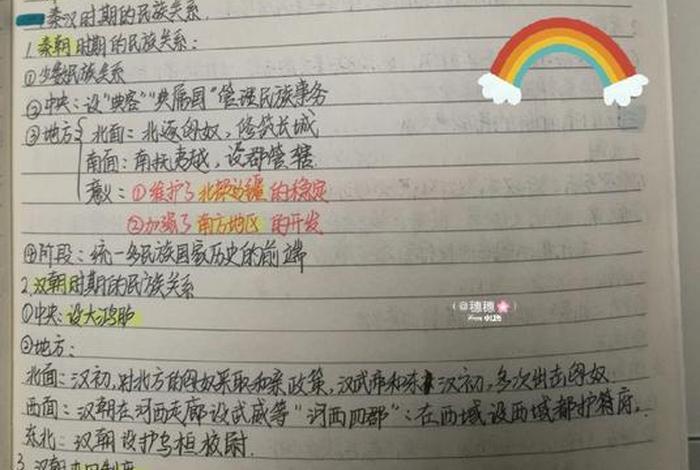 一、秦汉时期的民族关系.
1.秦朝时期的民族关系:
①少数民族关系
②中央:设"典客""典属国"管理民族事务
③地方 北面:北逐匈奴,修筑长城
南面:南抚夷越,设郡管辖.
意义:①维护了北部边疆的稳定
②加强了南方地区的开发
④阶段:统一多民族国家历史的前端
2.汉朝时期的民族关系
①中央:设大鸿胪
②地方:
北面:汉初,对北方的匈奴采取和亲政策,汉武帝和东汉初,多次出击匈奴.
西面:汉朝在河西走廊设武威等"河西四郡";在西域设西域都护府.
东北:汉朝设护乌桓校尉.
3.汉朝
(@穗穗)